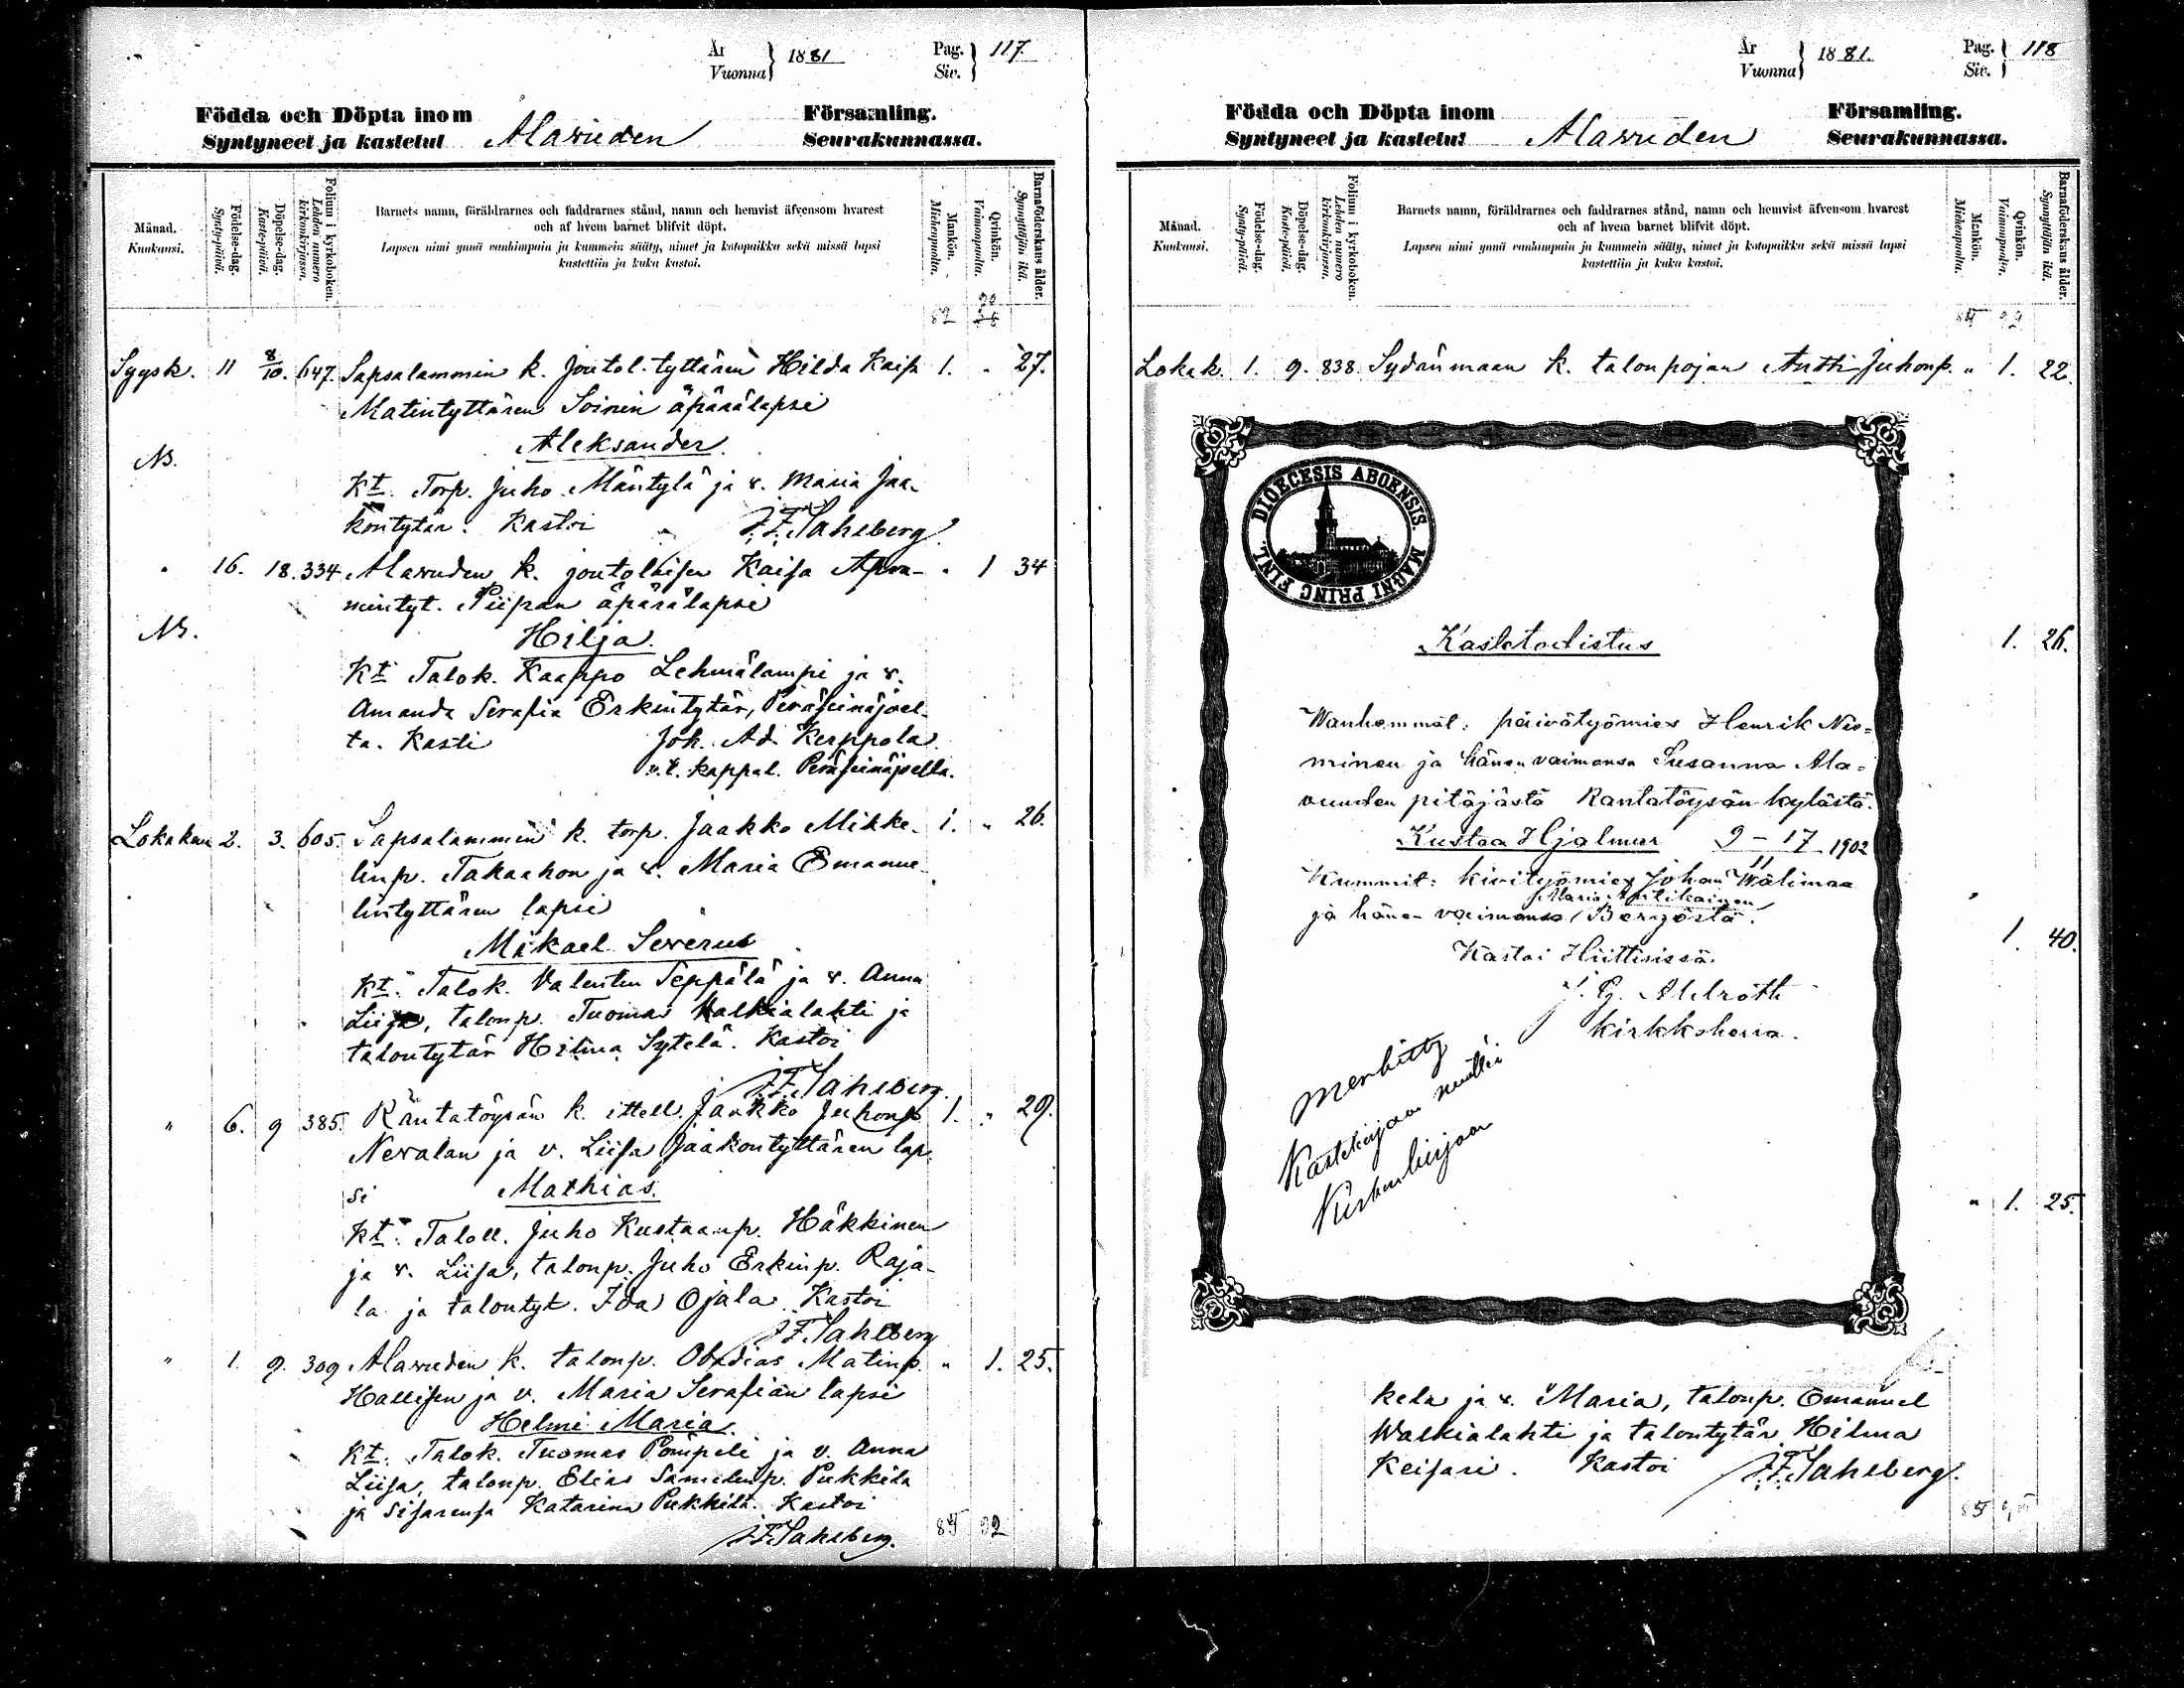 År
Vuonna } 1881
Pag.
Siv. } 117.
Födda och Döpta inom
Syntyneet ja kastetut Alavuden
Församling.
Seurakunnassa.
Månad.
Kuukausi.
Födelse-dag.
Synty-päivä.
Döpelse-dag.
Kaste-päivä.
Folium i kyrkoboken.
Lehden numero kirkonkirjassa.
Barnets namn, föräldrarnes och faddrarnes stånd, namn och hemvist äfvensom hvarest
och af hvem barnet blifvit döpt.
Lapsen nimi ynnä vanhimpain ja kummein sääty, nimet ja kotopaikka sekä missä lapsi
kastettiin ja kuka kastoi.
Mankön.
Miehenpuolta.
Qvinkön.
Vaimonpuolta.
Barnaföderskans ålder.
Synnyttäjän ikä.
82
Syysk. 11 8/10. 647. Sapsalammin k. joutol. tyttären Hilda Kaisa 1. " 27.
Matintyttären Soinin äpärälapsi
Aleksander.
NB.
Kt. Torp. Juho Mäntylä ja v. Maria Jaa-
kontytär. Kastoi J.F. Sahlberg.
" 16. 18. 334. Alavuden k. joutolaisen Kaisa Apra- " 1 34
mintyt. Piipan äpärälapsi
NB.
Hilja.
Kt Talok. Kaappo Lehmälampi ja v.
Amanda Serafia Erkintytär, Peräseinäjoel-
ta. Kasti Joh. Ad. Kerppola
v.t. kappal. Peräseinäjoella.
Lokakuu 2. 3. 605. Sapsalammin k. torp. Jaakko Mikke- 1. " 26.
linp. Takaahon ja v. Maria Emanue-
lintyttären lapsi
Mikael Severus
Kt. Talok. Valentin Seppälä ja v. Anna
Liisa, talonp. Tuomas Walkialahti ja
talontytär Hilma Sytelä. Kastoi
J.F. Sahlberg.
" 6. 9 385. Rantatöysän k. itsell. Jaakko Juhonp. 1. " 29.
Nevalan ja v. Liisa Jaakontyttären lap-
si Mathias.
Kt. Taloll. Juho Kustaanp. Häkkinen
ja v. Liisa, talonp. Juho Erkinp. Raja-
la ja talontyt. Ida Ojala. Kastoi
J.F. Sahlberg
" 1. 9. 309 Alavuden k. talonp. Obadias Matinp. " 1. 25.
Hallisen ja v. Maria Serafian lapsi
Helmi Maria.
Kt. Talok. Tuomas Pömpeli ja v. Anna
Liisa, talonp. Elias Samelinp. Pukkila
ja sisarensa Katarina Pukkila. Kastoi
J.F. Sahlberg.
84 92
År
Vuonna } 1881.
Pag.
Siv. } 118
Födda och Döpta inom
Syntyneet ja kastetut Alavuden
Församling.
Seurakunnassa.
Månad.
Kuukausi.
Födelse-dag.
Synty-päivä.
Döpelse-dag.
Kaste-päivä.
Folium i kyrkoboken.
Lehden numero kirkonkirjassa.
Barnets namn, föräldrarnes och faddrarnes stånd, namn och hemvist äfvensom hvarest
och af hvem barnet blifvit döpt.
Lapsen nimi ynnä vanhimpain ja kummein sääty, nimet ja kotopaikka sekä missä lapsi
kastettiin ja kuka kastoi.
Mankön.
Miehenpuolta.
Qvinkön.
Vaimonpuolta.
Barnaföderskans ålder.
Synnyttäjän ikä.
84 92
Lokak. 1. 9. 838. Sydänmaan k. talonpojan Antti Juhonp. " 1. 22.
DIOECESIS ABOENSIS. MAGNI PRINC FINL.
Kastetodistus
1. 26.
Wanhemmat: päivätyömies Henrik Nie-
minen ja hänen vaimonsa Susanna Ala-
vuuden pitäjästä Rantatöysän kylästä.
Kustaa Hjalmar 9 – 17/11 1902
Kummit: kivityömies Johan Wälimaa
ja hänen vaimonsa Maria Bergöstä.
1. 40.
Kastoi Hiittisissä
J. G. Ahlroth
kirkkoherra.
Merkitty
Kastekirjaan
Kirkonkirjaan
" 1. 25.
kela ja v. Maria, talonp. Emanuel
Walkialahti ja talontytär Hilma
Keisari. Kastoi J.F. Sahlberg.